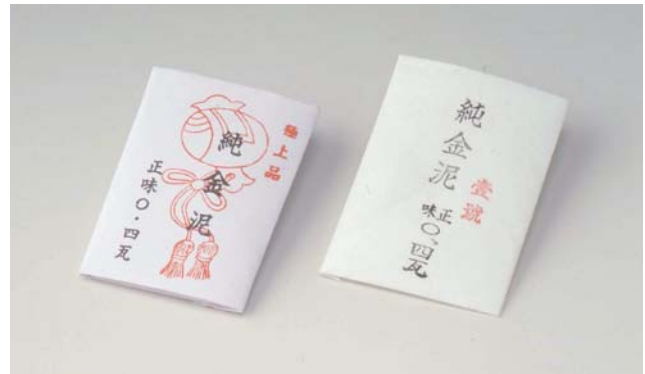 極上品
純金泥
正味〇・四瓦
純金泥
壹號
正味
〇、四瓦